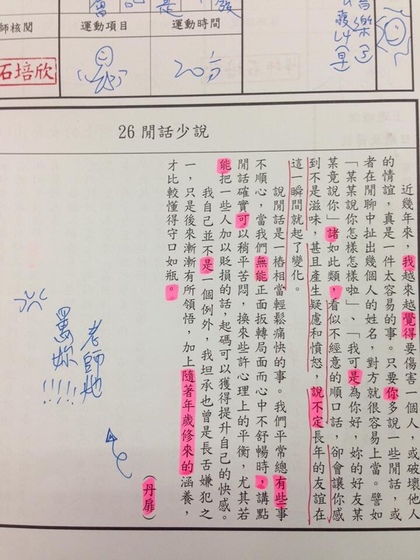 師核閱
運動項目
運動時間
石培欣
20分
26 閒話少說
近幾年來，我越來越覺得要傷害一個人，或破壞他人
的情誼，真是一件太容易的事。只要你多說一些閒話，或
者在閒聊中扯出幾個人的姓名，對方就很容易上當。譬如
「某某說你怎樣怎樣啦」、「我可是為你好，妳的好友某
某竟說你」諸如此類，看似不經意的順口話，卻會讓你感
到不是滋味，甚且產生疑慮和憤怒，說不定長年的友誼在
這一瞬間就起了變化。
說閒話是一樁相當輕鬆痛快的事。我們平常總有些事
不順心，當我們無能正面扳轉局面而心中不舒暢時，講點
閒話確實可以稍平苦悶，換來些許心理上的平衡，尤其若
能把一些人加以貶損的話，起碼可以獲得提升自己的快感。
我自己並不是一個例外，我坦承也曾是長舌嫌犯之
一，只是後來漸漸有所領悟，加上隨著年歲修來的涵養，
才比較懂得守口如瓶。
（丹扉）
老師她
罵妳!!!!!